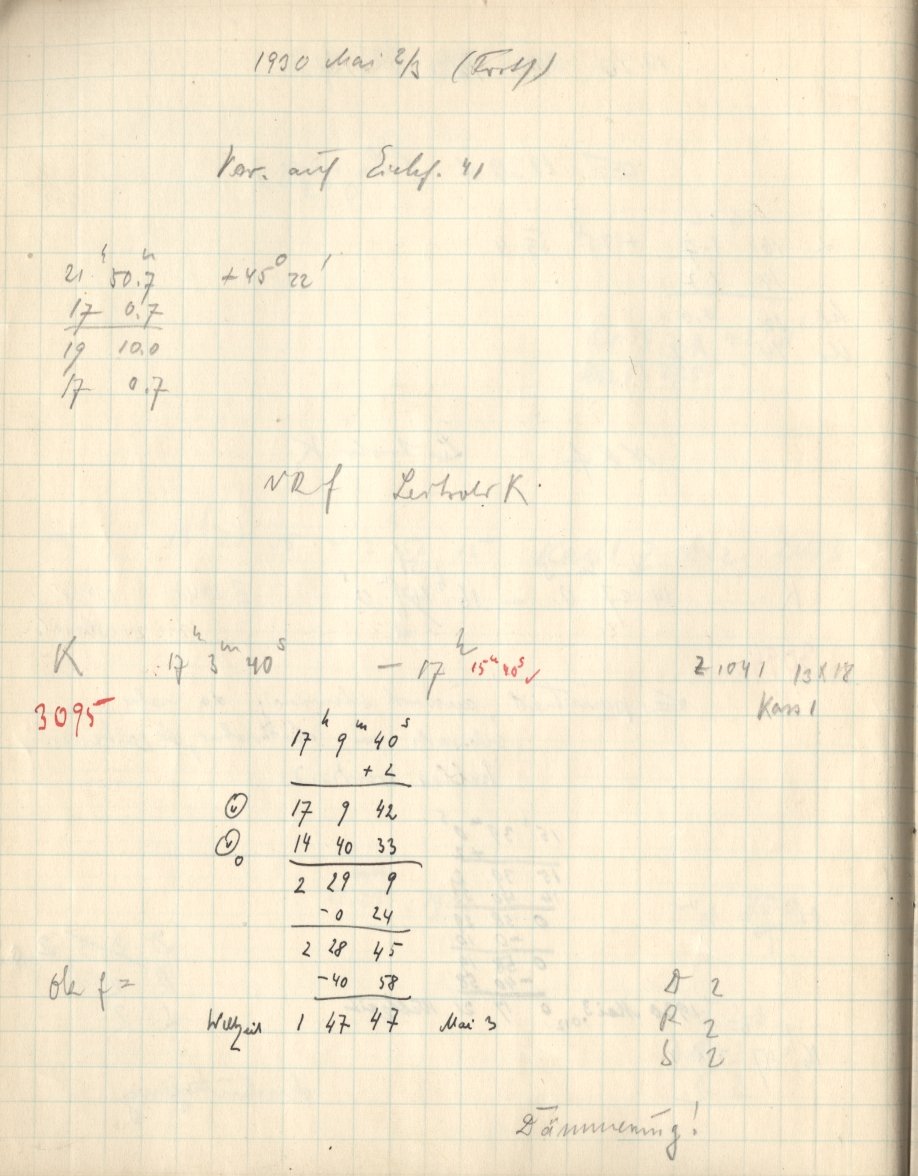 1930 Mai 2/3 (Forts)
Var. auf Eichf. 41
21ʰ 50.7ᵐ +45° 22'
17 0.7
19 10.0
17 0.7
NRf K
K 17ʰ 3ᵐ 40ˢ — 17ʰ 15ᵐ 40ˢ ✓ Z 1041 13X18
3095 Kass 1
17ʰ 9ᵐ 40ˢ
+ 2
17 9 42
14 40 33
2 29 9
-0 24
2 28 45
-40 58
Ok f =
Weltzeit 1 47 47 Mai 3
D 2
R 2
S 2
Dämmerung!